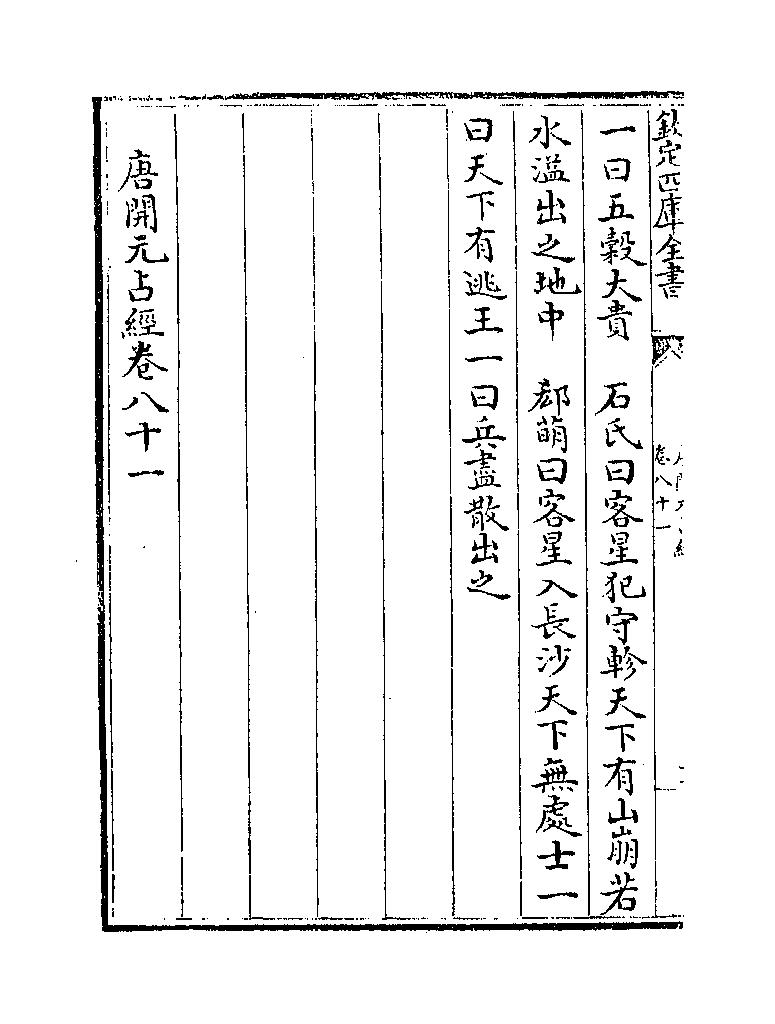 欽定四庫全書
卷八十一
一曰五穀大貴　石氏曰客星犯守軫天下有山崩若
水溢出之地中　郄萌曰客星入長沙天下無處士一
曰天下有逃王一曰兵盡散出之
唐開元占經卷八十一